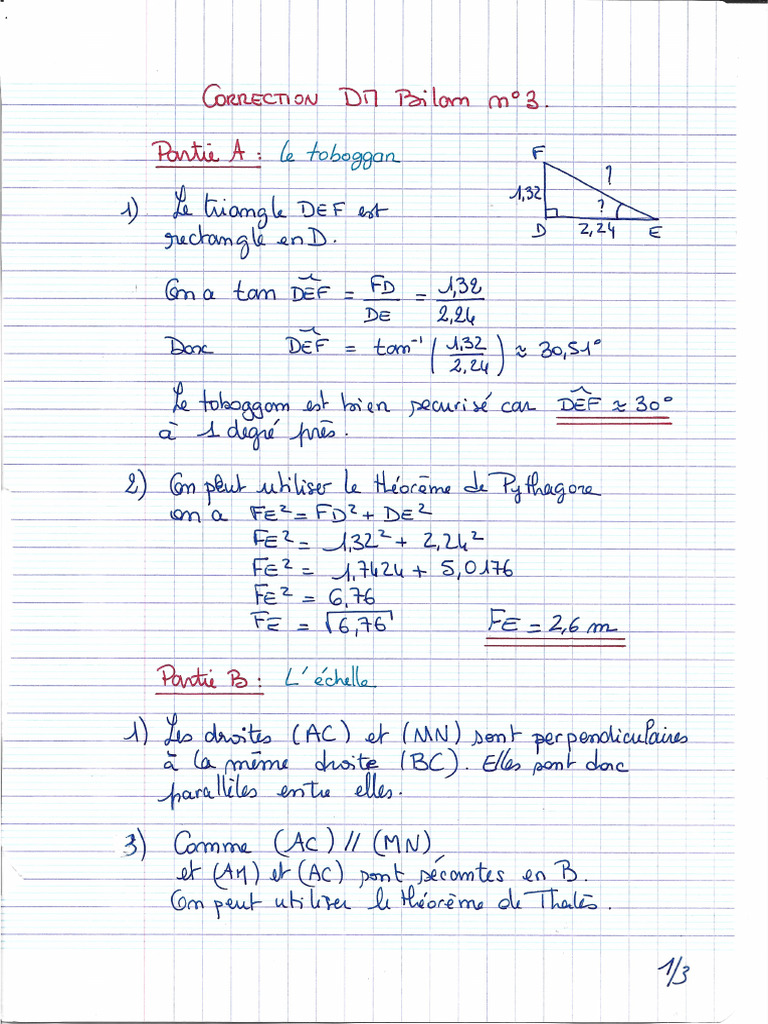 CORRECTION DM Bilan n°3.
Partie A : Le toboggan
F
?
1,32
?
D 2,24 E
1) Le triangle DEF est
rectangle en D.
On a tan DEF = FD/DE = 1,32/2,24
Donc DEF = tan⁻¹(1,32/2,24) ≈ 30,51°
Le toboggan est bien securisé car DEF ≈ 30°
à 1 degré près.
2) On peut utiliser le théorème de Pythagore
on a FE² = FD² + DE²
FE² = 1,32² + 2,24²
FE² = 1,7424 + 5,0176
FE² = 6,76
FE = √6,76 FE = 2,6 m
Partie B : L'échelle
1) Les droites (AC) et (MN) sont perpendiculaires
à la même droite (BC). Elles sont donc
parallèles entre elles.
3) Comme (AC) // (MN)
et (AM) et (AC) sont sécantes en B.
On peut utiliser le théorème de Thalès.
1/3